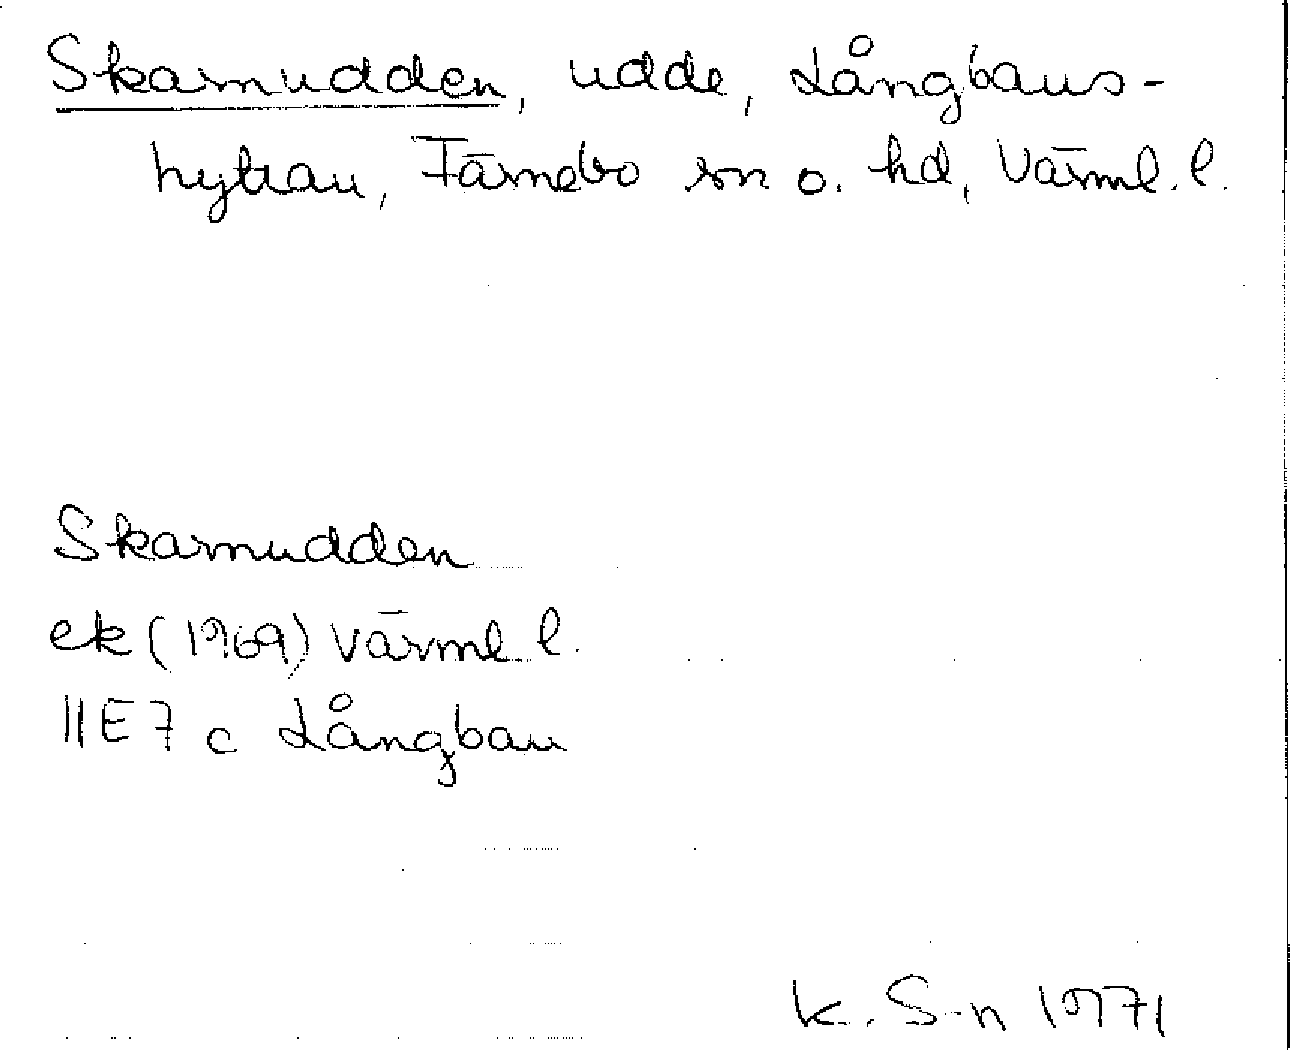 Skarnudden, udde, Långbans-
hyttan, Färnebo sn o. hd, Värml. l.
Skarnudden
ek (1969) Värml. l.
11E 7 c Långban
K. S-n 1971